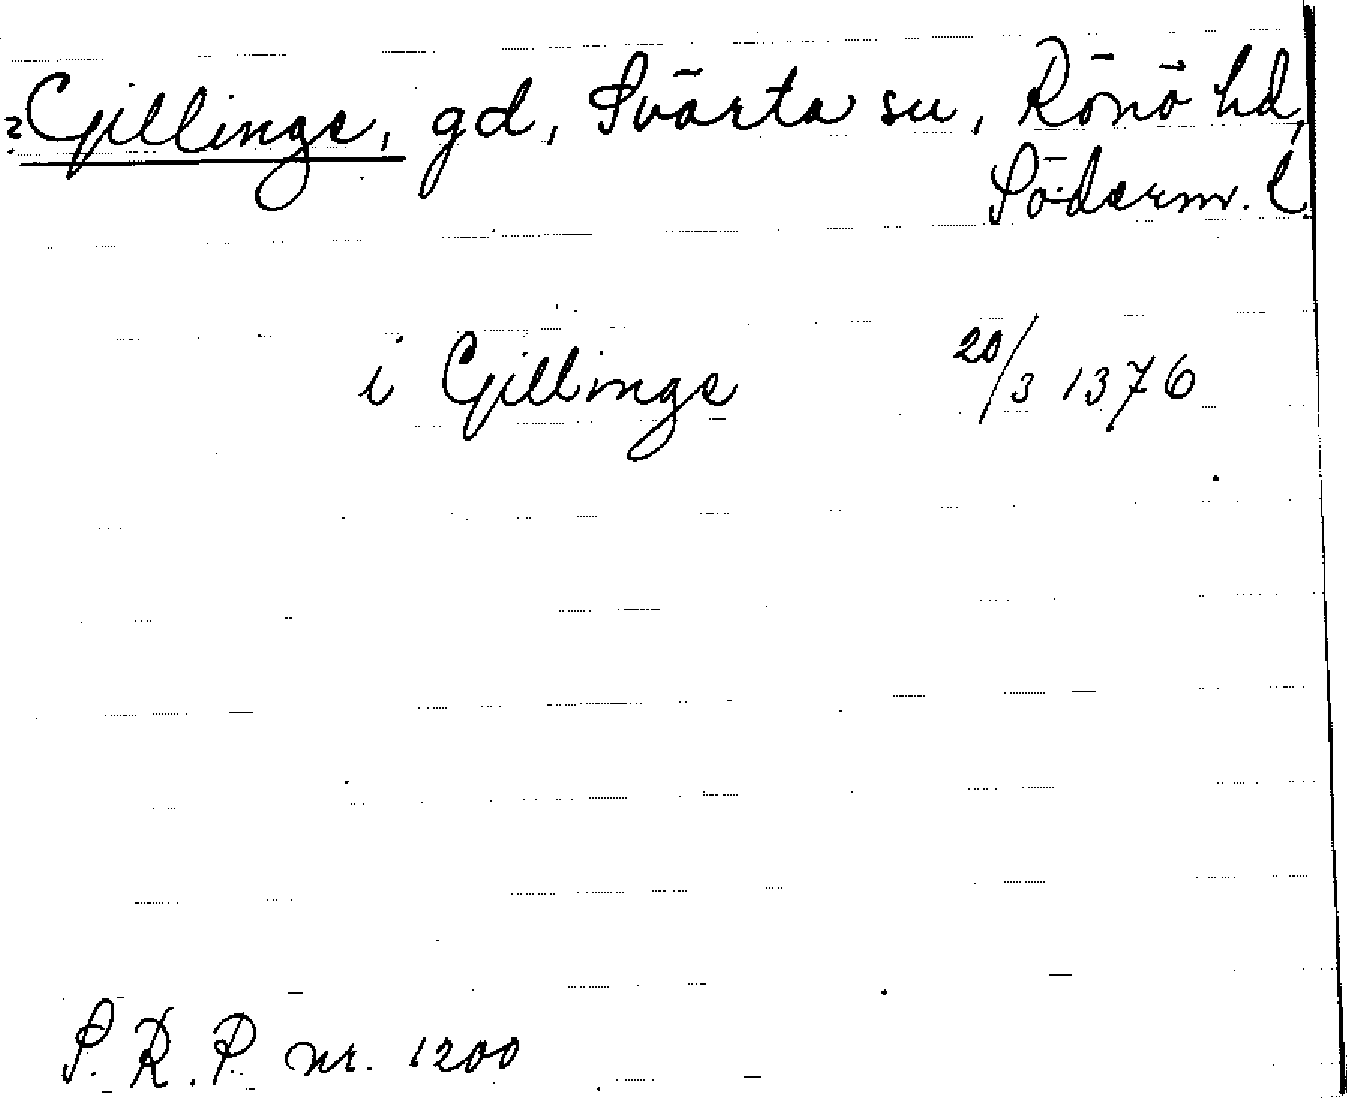 ? Gillinge, gd, Svärta sn, Rönö hd,
Söderm. l.
i Gillinge 20/3 1376
S. R. P. nr. 1200